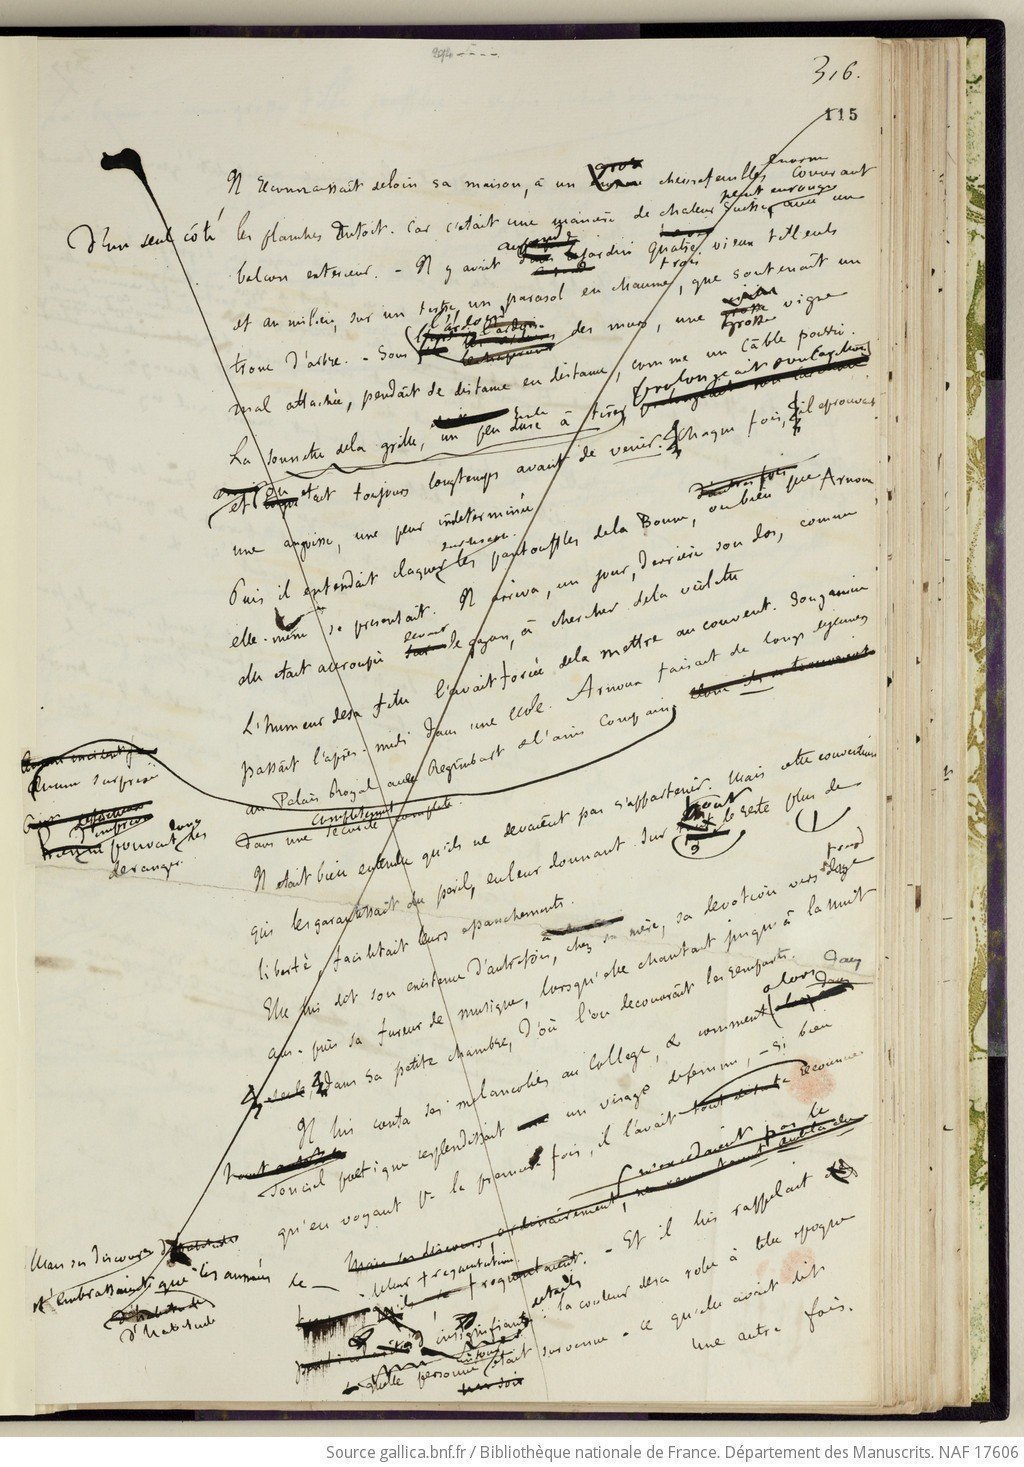 316.
115
Il reconnaissait de loin sa maison, à un chevrefeuille enorme couvrant
d'un seul côté les planches du toit. Car c'était une manière de chalet suisse, peint en rouge avec un
balcon exterieur. – Il y avait jardin quatre trois vieux tilleuls
et au milieu, sur un tertre, un parasol en chaume, que soutenait un
tronc d'arbre. – Sous l'ardoise des murs, une grosse vigne
mal attachée, pendait de distance en distance, comme un câble pourri.
La sonnette de la grille, un peu dure à tirer prolongeait son carillon
et on etait toujours longtemps avant de venir. Chaque fois, il eprouvait
une angoisse, une peur indeterminée.
Puis il entendait claquer sur le sable les pantouffles de la Bonne, ou bien que Arnoux,
elle-même se presentait. Il arriva, un jour, derrière son dos, comme
elle etait accroupie devant le gazon, à chercher de la violette
L'humeur de sa fille l'avait forcée de la mettre au couvent. Son gamin
passait l'après-midi dans une ecole. Arnoux faisait de longs dejeuners
au Palais Royal avec Regimbart & l'ami Compain
Aucun surprise
pouvait les
deranger.
dans une securité complète.
Il etait bien entendu qu'ils ne devaient pas s'appartenir. Mais cette convention
qui les garantissait du peril, en leur donnant sur tout le reste plus de
liberté, facilitait leurs epanchements.
Elle lui dit son existence d'autrefois, chez sa mère, sa devotion vers dix
ans. puis sa fureur de musique, lorsqu'elle chantait jusqu'à la nuit
seule dans sa petite chambre, d'où l'on decouvrait les remparts.
Il lui conta ses melancolies au College, & comment alors dans
son ciel poetique resplendissait un visage de femme, – si bien
qu'en voyant pr la premiere fois, il l'avait reconnue
Mais ses discours d'habitude
n'embrassaient que les années de leur frequentation
d'habitude
– Et il lui rappelait
insignifiants details : la couleur de sa robe à telle epoque
quelle personne etait survenue – ce qu'elle avait dit
une autre fois.
Source gallica.bnf.fr / Bibliothèque nationale de France. Département des Manuscrits. NAF 17606